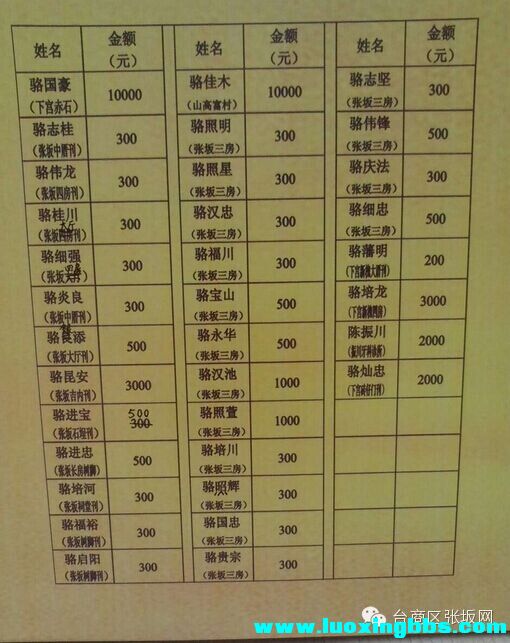 姓名 金额（元） 姓名 金额（元） 姓名 金额（元）
骆国豪 10000 骆佳木 10000 骆志坚 300
（下宫赤石） （山高富村） （张坂三房）
骆志桂 300 骆照明 300 骆伟锋 500
（张坂中厝刊） （张坂三房） （张坂三房）
骆伟龙 300 骆照星 300 骆庆法 300
（张坂四房刊） （张坂三房） （张坂三房）
骆桂川 300 骆汉忠 300 骆细忠 500
（张坂 刊） （张坂三房） （张坂三房）
骆细强 300 骆福川 300 骆藩明 200
（张坂 房） （张坂三房）
骆炎良 300 骆宝山 500 骆培龙 3000
（张坂中厝刊） （张坂三房）
骆良添 500 骆永华 500 陈振川 2000
（张坂大厅刊） （张坂三房） （振川牙科诊所）
骆昆安 3000 骆汉池 1000 骆灿忠 2000
（张坂吉内刊） （张坂三房）
骆进宝 500 300 骆照萱 1000
（张坂石埕刊） （张坂三房）
骆进忠 500 骆培川 300
（张坂长房树脚） （张坂三房）
骆培河 300 骆照辉 300
（张坂祠堂刊） （张坂三房）
骆福裕 300 骆国忠 300
（张坂树脚刊） （张坂三房）
骆启阳 300 骆贵宗 300
（张坂树脚刊） （张坂三房）
台商区张坂网
www.luoxingbbs.com